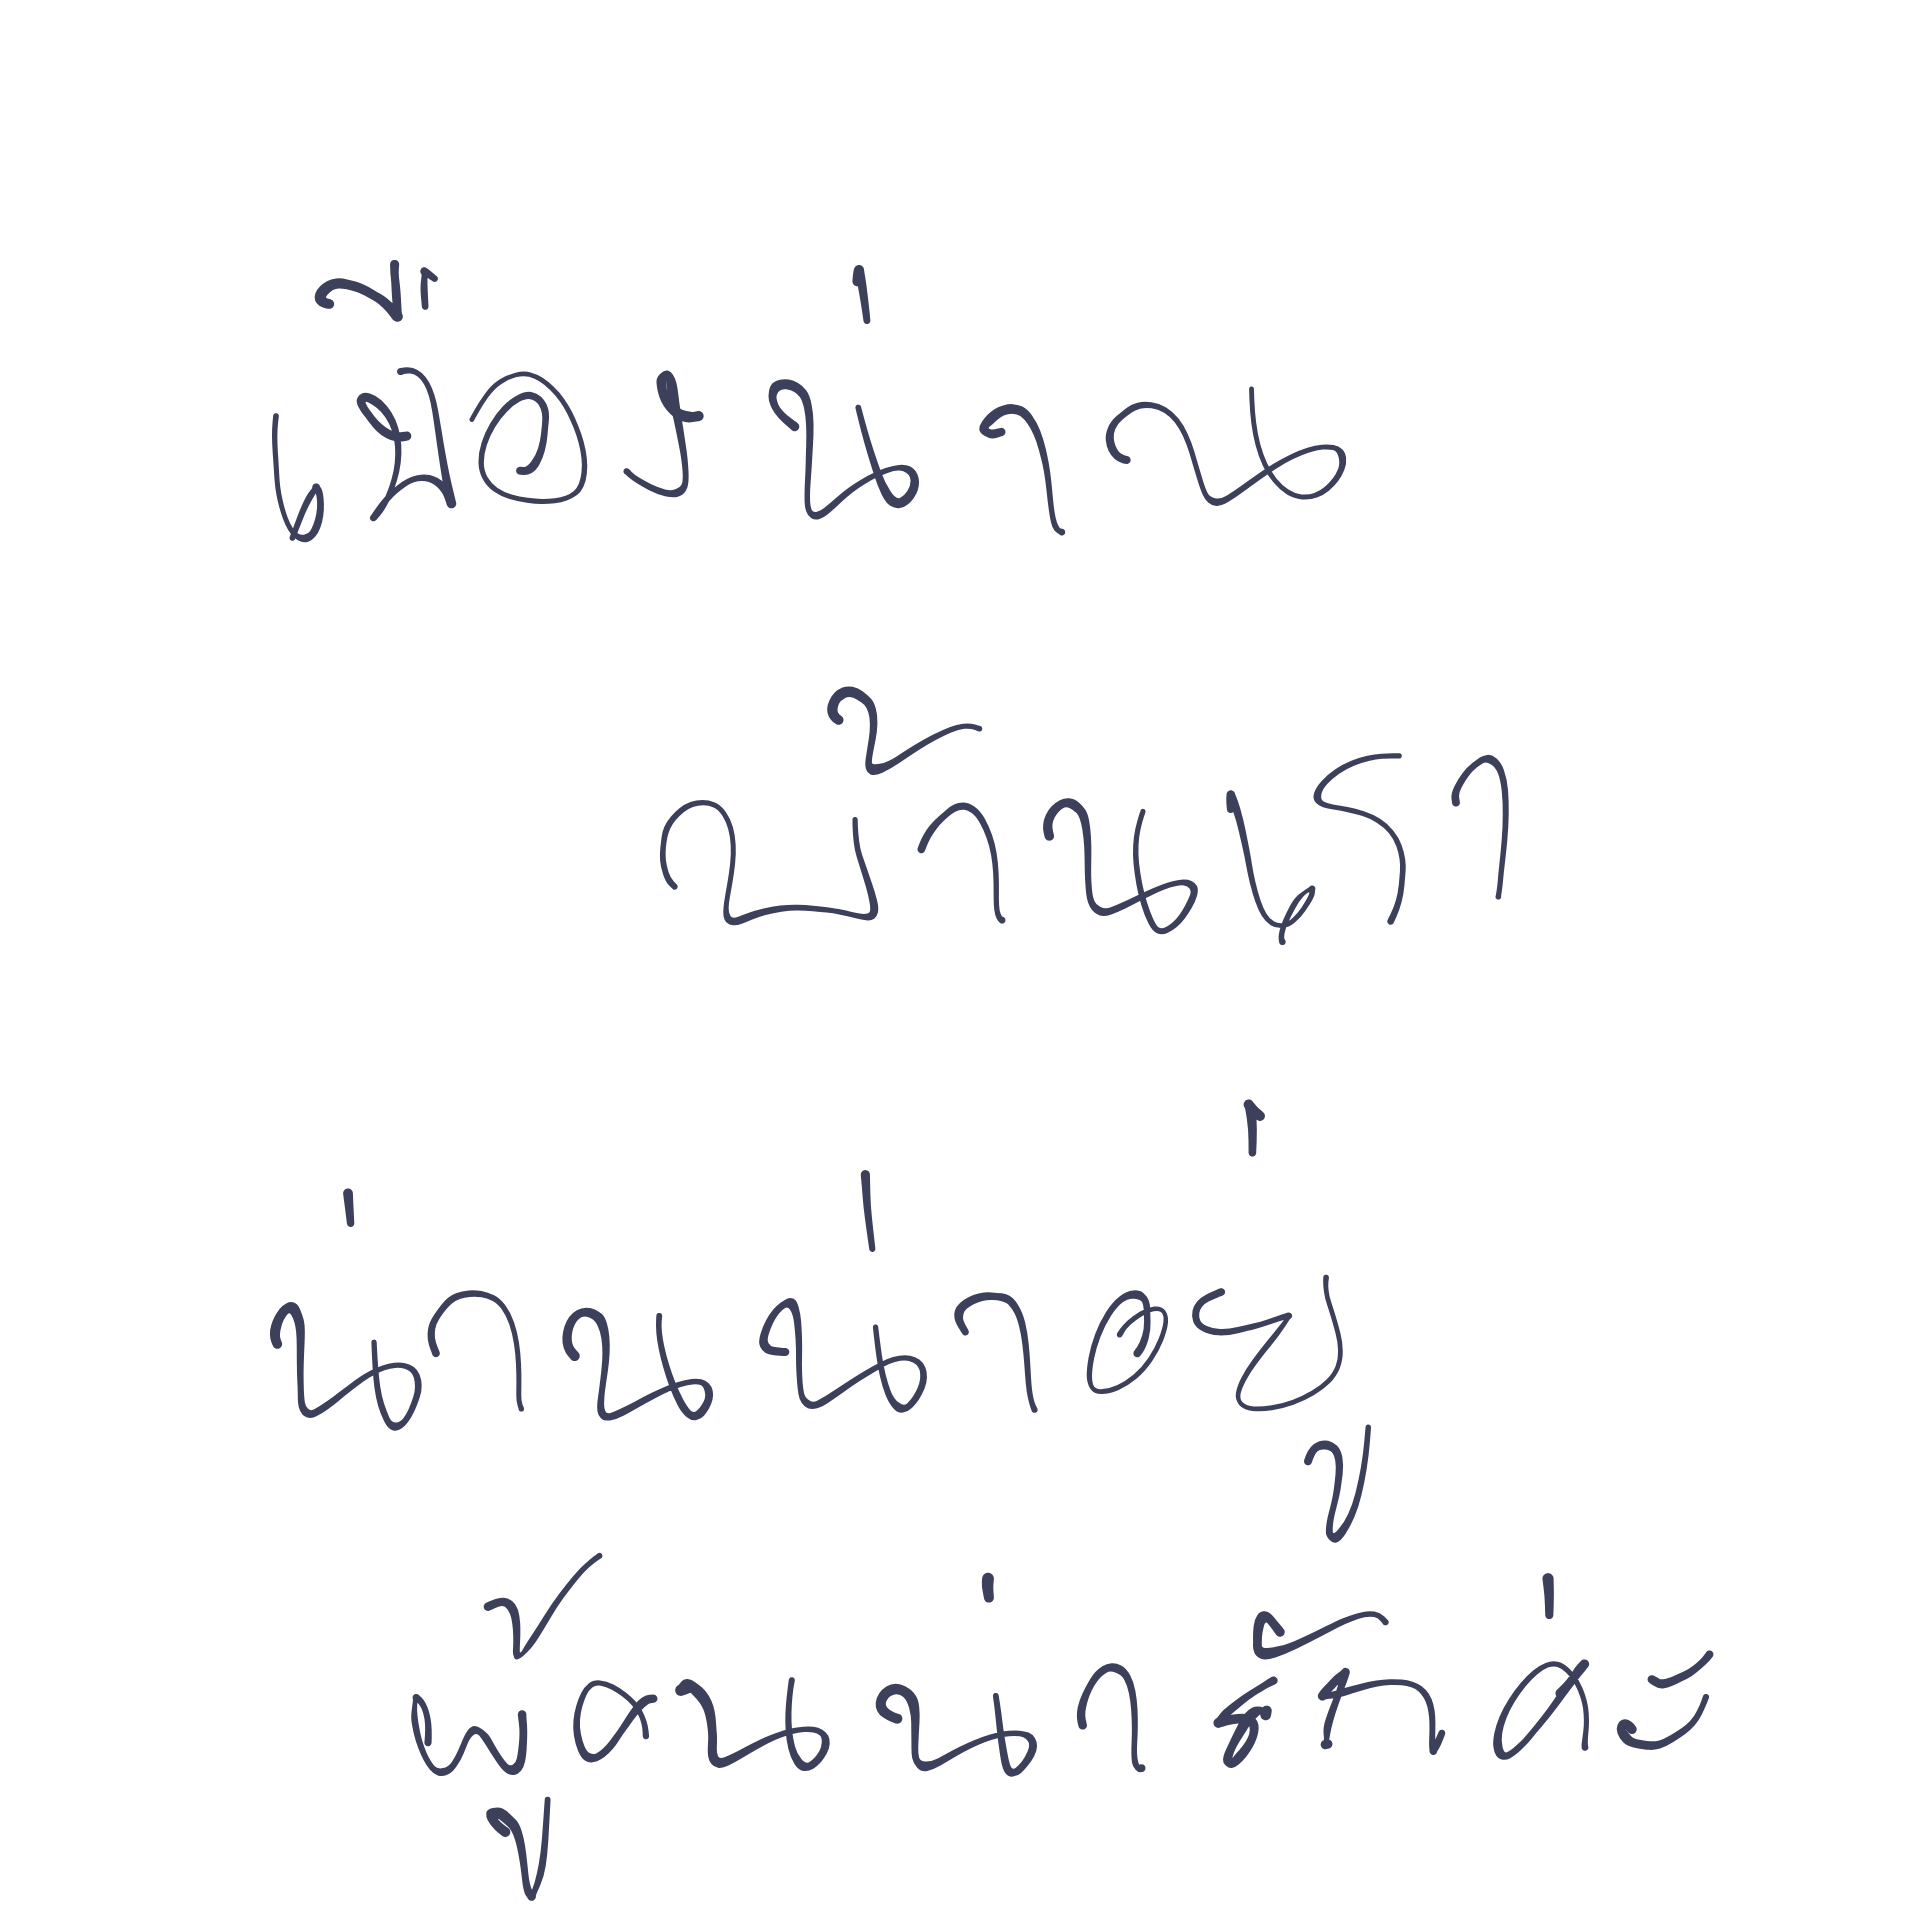 เมืองน่าน
บ้านเรา
น่านน่าอยู่
ผู้คนน่ารักค่ะ